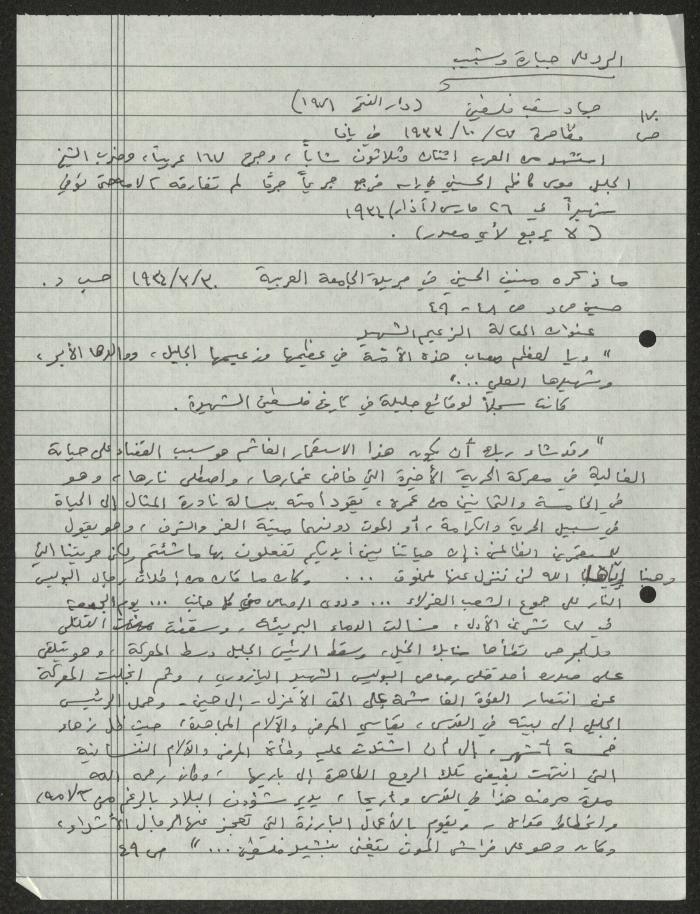 الرد على جبارة وشبيب
جهاد شعب فلسطين (دار الفتح ١٩٧١)
ص ١٧٠
مظاهرة ٢٧/١٠/١٩٣٣ في يافا
استشهد من العرب اثنان وثلاثون شاباً، وجرح ١٦٧ عربياً، وضرب الشيخ
الجليل موسى كاظم الحسيني في رأسه فجرح جرحاً لم تفارقه آلامه حتى توفي
شهيداً في ٢٦ مارس (آذار) ١٩٣٤
(لا يرجع لأي مصدر).
ما ذكره منيف الحسيني في جريدة الجامعة العربية ٣٠/٣/١٩٣٤ حسب د.
ص ٤٨ - ٤٩
عنوان المقالة الزعيم الشهيد
"ويا لعظم مصاب هذه الأمة في عظيمها وزعيمها الجليل، ووالدها الأبر،
وشهيدها العلي ..."
كانت سجلاً لوقائع جليلة في تاريخ فلسطين الشهيرة.
"وقد شاء ربك أن يكون هذا الاستعمار الغاشم هو سبب القضاء على حياته
الغالية في معركة الحرية الأخيرة التي خاض غمارها، واصطلى نارها، وهو
في الخامسة والثمانين من عمره، يقود أمته ببسالة نادرة المثال إلى الحياة
في سبيل الحرية والكرامة، أو الموت دونهما ميتة العز والشرف، وهو يقول
للمستعمرين الظالمين: إن حياتنا بين أيديكم تفعلون بها ما شئتم ولكن حريتنا التي
وهبنا إياها الله لن نتنزل عنها لمخلوق .... وكان ما كان من إطلاق رجال البوليس
النار على جموع الشعب العزلاء ... ودوى الرصاص من كل جانب ... يوم الجمعة
في ٢٧ تشرين الأول، فسالت الدماء البريئة، وسقطت القتلى
والجرحى تطأها سنابك الخيل، وسقط الرئيس الجليل وسط المعركة، وهو يتلقى
على صدره أحد قتلى رصاص البوليس الشهيد اليازوري، وثم انجلت المعركة
عن انتصار القوة الغاشمة على الحق الأعزل - إلى حين - وحمل الرئيس
الجليل إلى بيته في القدس، يقاسي المرض والآلام المجاهدة، حيث ظل زهاء
خمسة أشهر، إلى أن اشتدت عليه وطأة المرض والآلام النفسانية
التي انتهت بفيض تلك الروح الطاهرة إلى باريها، وكان رحمه الله
مدة مرضه هذا في القدس وأريحا، يدير شؤون البلاد بالرغم من آلامه،
وانحطاط قواه، ويقوم بالأعمال البارزة التي تعجز عنها الرجال الأشداء،
وكان وهو على فراش الموت يتغنى بنشيد فلسطين ..." ص ٤٩